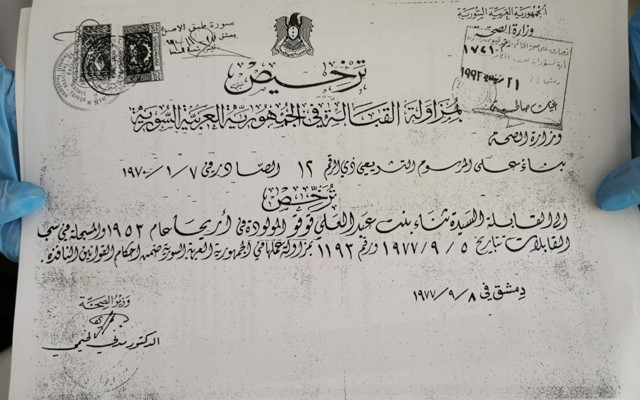 الجمهورية العربية السورية
وزارة الصحة
صورة طبق الأصل
ترخيص
بمزاولة القبالة في الجمهورية العربية السورية
وزارة الصحة
بناء على المرسوم التشريعي ذي الرقم ١٢ الصادر في ١٩٧٠/١/٧
ترخّص
الى القابلة السيدة ثناء بنت عبد العلي قوقو المولودة في أريحا عام ١٩٥٢ والمسجلة في سجل
القابلات بتاريخ ١٩٧٧/٩/٥ ورقم ١١٩٢ بمزاولة عملها في الجمهورية العربية السورية ضمن احكام القوانين النافذة .
دمشق في ١٩٧٧/٩/٨
وزير الصحة
الدكتور مدني الخيمي